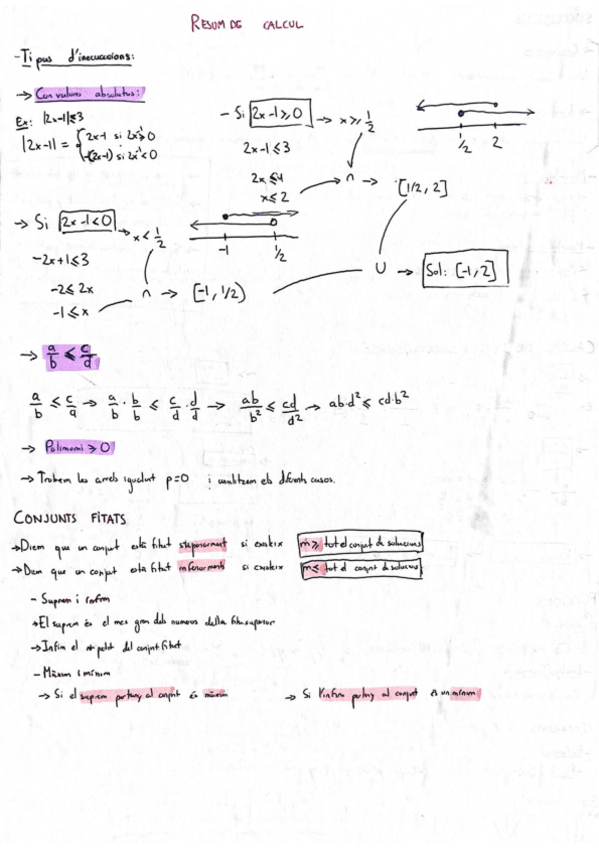 RESUM DE CALCUL
- Tipus d'inecuacions:
→ Con valores absolutos:
Ex: |2x-1|≤3
|2x-1| = { 2x-1 si 2x-1≥0
-(2x-1) si 2x-1<0
- Si 2x-1≥0 → x≥ 1/2
2x-1≤3
2x≤4
x≤2
∩ → [1/2, 2]
1/2 2
→ Si 2x-1<0 → x< 1/2
-2x+1≤3
-2≤2x
-1≤x
-1 1/2
∩ → [-1, 1/2)
∪ → Sol: [-1,2]
→ a/b ≤ c/d
a/b ≤ c/d → a/b · b/b ≤ c/d · d/d → ab/b² ≤ cd/d² → ab·d² ≤ cd·b²
→ Polinomi ≥ 0
→ Trobem les arrels igualant p=0 i analitzem els diferents casos.
CONJUNTS FITATS
→ Diem que un conjunt està fitat superiorment si existeix m ≥ tot el conjunt de solucions
→ Diem que un conjunt esta fitat inferiorment si existeix m ≤ tot el conjunt de solucions
- Suprem i infim
→ El suprem és el mes gran dels numeros de la fita superior
→ Infim el + petit del conjunt fitat
- Màxim i mínim
→ Si el suprem pertany al conjunt és màxim
→ Si l'infim pertany al conjunt és un mínim